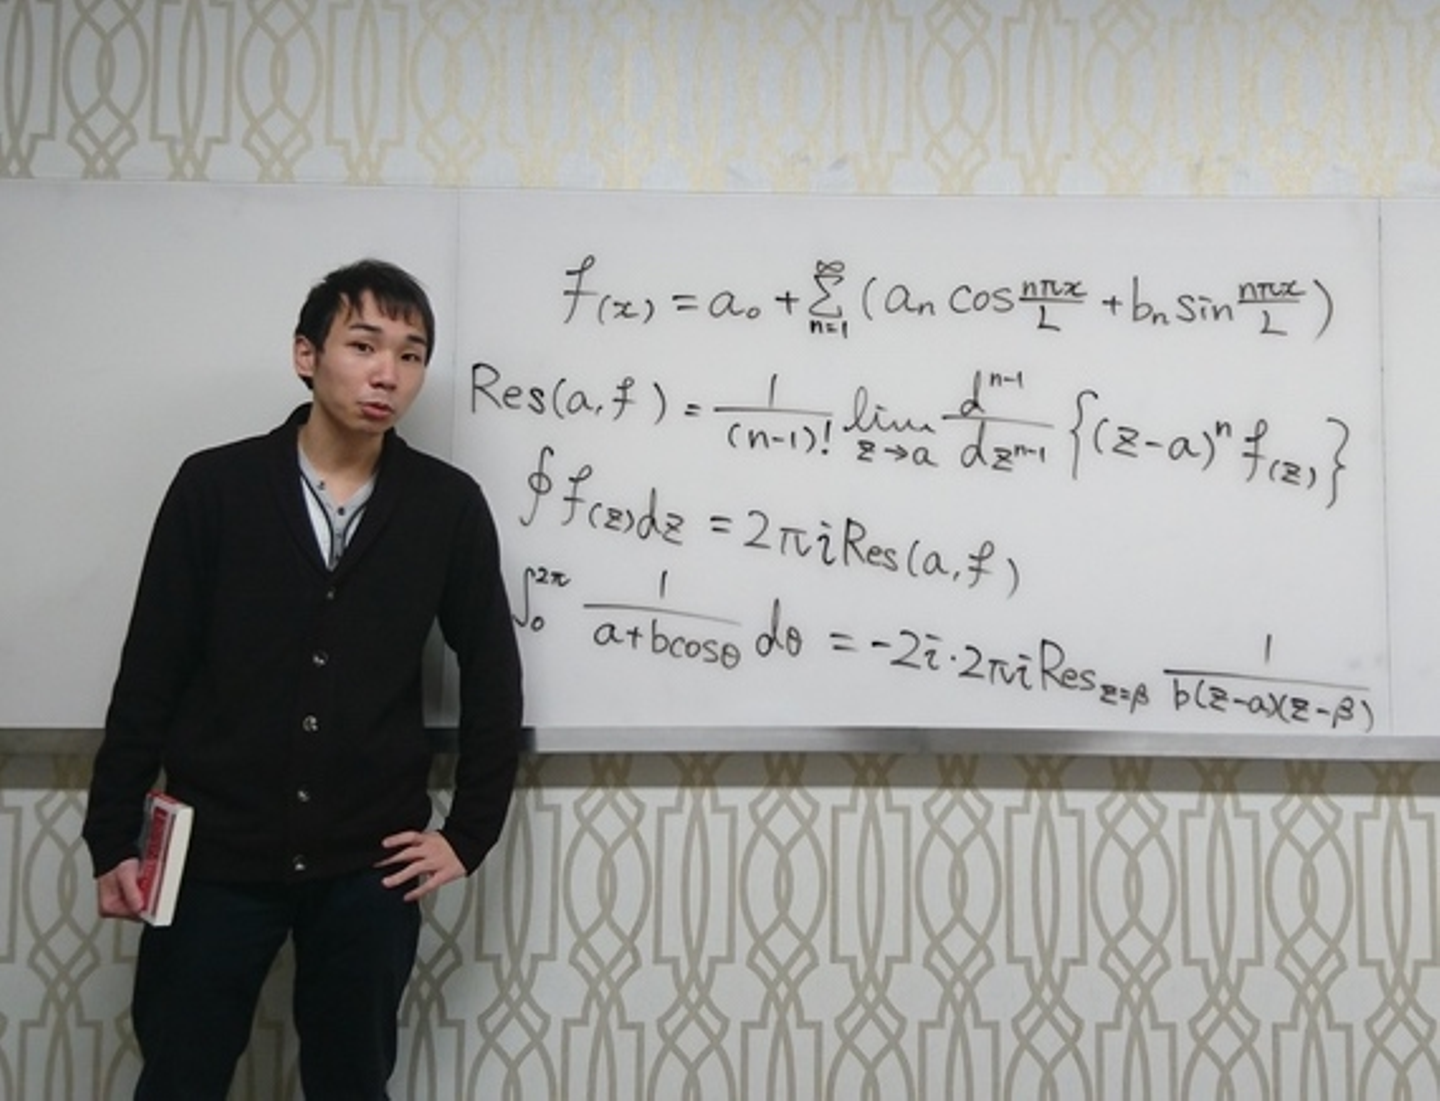 f(x) = a₀ + ∑_{n=1}^{∞} (aₙ cos nπx/L + bₙ sin nπx/L)
Res(a, f) = 1/(n-1)! lim_{z→a} d^{n-1}/dz^{n-1} {(z-a)ⁿ f(z)}
∮ f(z)dz = 2πi Res(a, f)
∫₀^{2π} 1/(a+bcosθ) dθ = -2i·2πi Res_{z=β} 1/(b(z-a)(z-β))